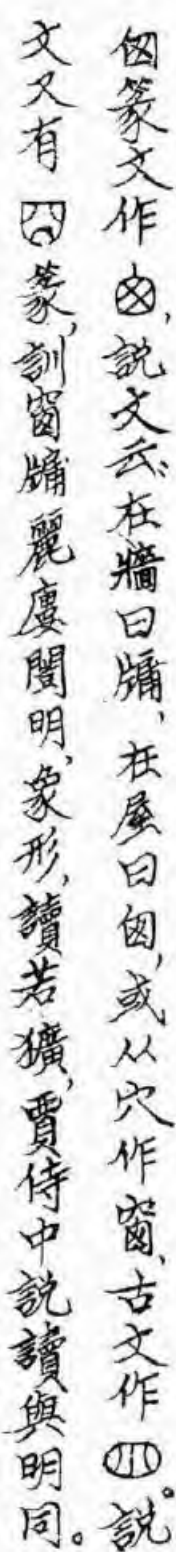 囪篆文作，說文云：在牆曰牖，在屋曰囪，或从穴作窗，古文作。說
文又有囧篆，訓窗牖麗廔闓明，象形，讀若獷，賈侍中說讀與明同。